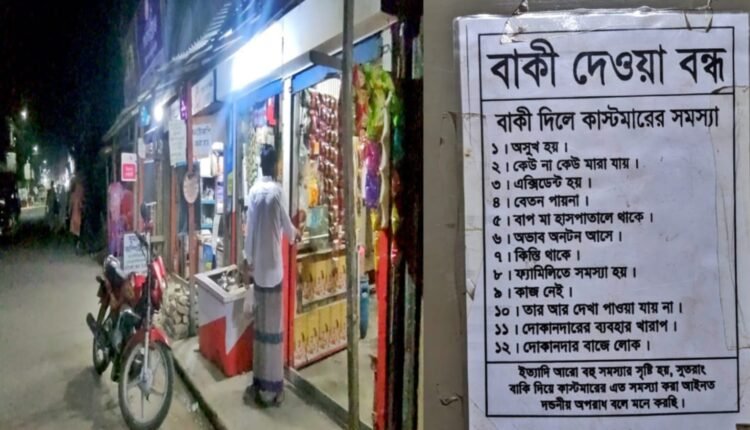 বাকী দেওয়া বন্ধ
বাকী দিলে কাস্টমারের সমস্যা
১। অসুখ হয়।
২। কেউ না কেউ মারা যায়।
৩। এক্সিডেন্ট হয়।
৪। বেতন পায়না।
৫। বাপ মা হাসপাতালে থাকে।
৬। অভাব অনটন আসে।
৭। কিস্তি থাকে।
৮। ফ্যামিলিতে সমস্যা হয়।
৯। কাজ নেই।
১০। তার আর দেখা পাওয়া যায় না।
১১। দোকানদারের ব্যবহার খারাপ।
১২। দোকানদার বাজে লোক।
ইত্যাদি আরো বহু সমস্যার সৃষ্টি হয়, সুতরাং
বাকি দিয়ে কাস্টমারের এত সমস্যা করা আইনত
দন্ডনীয় অপরাধ বলে মনে করছি।